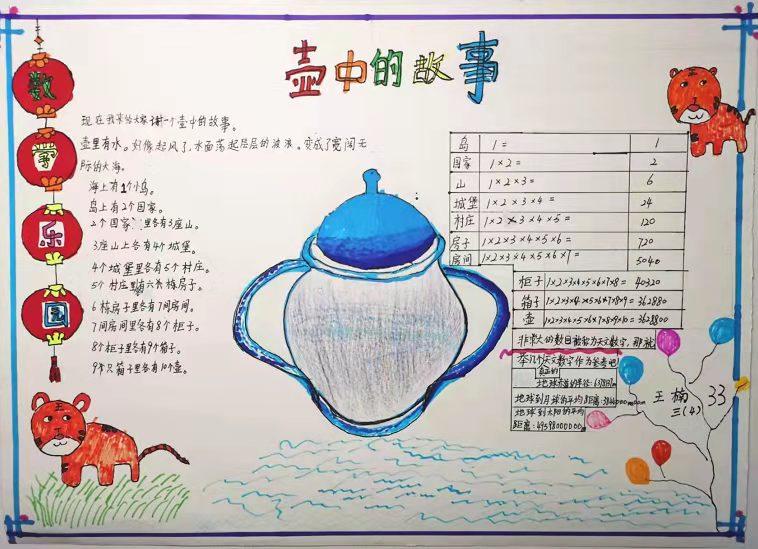 壶中的故事
数
学
乐
园
现在我来给大家讲一个壶中的故事。
壶里有水。好像起风了,水面荡起层层的波浪。变成了宽阔无
际的大海。
海上有1个小岛。
岛上有2个国家。
2个国家里各有3座山。
3座山上各有4个城堡。
4个城堡里各有5个村庄。
5个村庄里有六栋房子。
6栋房子里各有7间房间。
7间房间里各有8个柜子。
8个柜子里各有9个箱子。
9只箱子里各有10个壶。
岛 1= 1
国家 1×2= 2
山 1×2×3= 6
城堡 1×2×3×4= 24
村庄 1×2×3×4×5= 120
房子 1×2×3×4×5×6= 720
房间 1×2×3×4×5×6×7= 5040
柜子 1×2×3×4×5×6×7×8= 40320
箱子 1×2×3×4×5×6×7×8×9= 362880
壶 1×2×3×4×5×6×7×8×9×10= 3628800
非常大的数目被称为天文数字,那就
举几个天文数字作为参考吧
真正的
地球到月球的平均距离:
地球到太阳的平均
距离:
王楠 33
三(4)